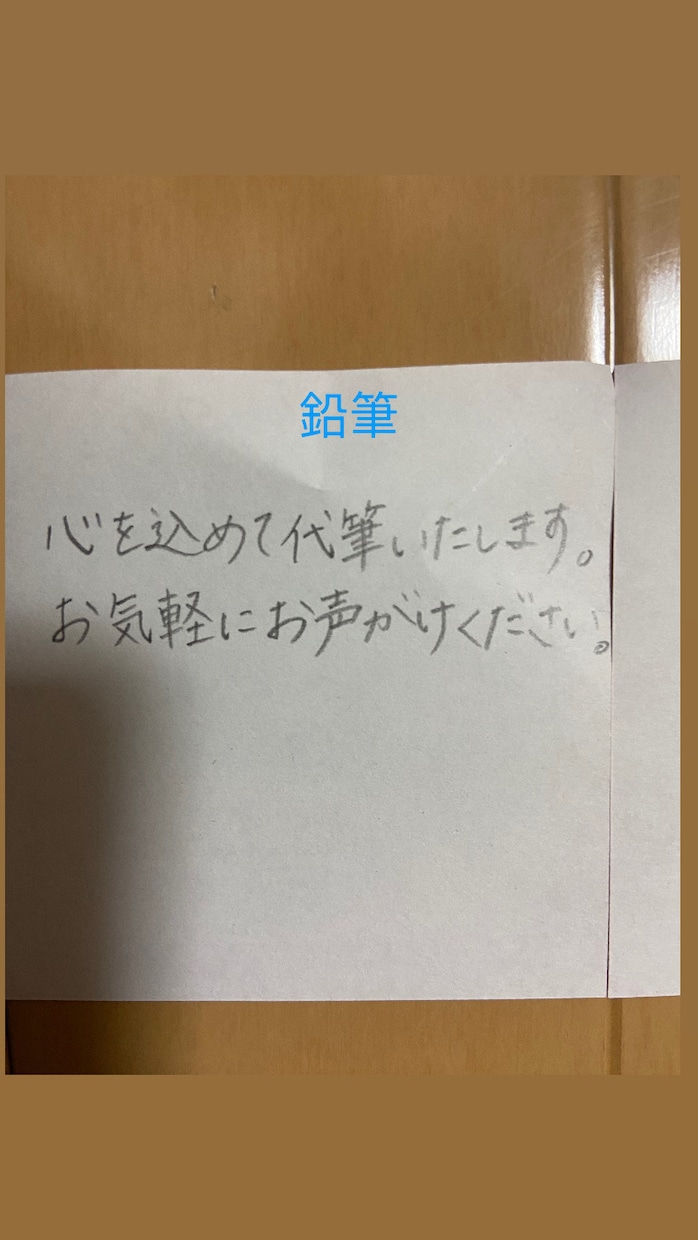 鉛筆
心を込めて代筆いたします。
お気軽にお声がけください。